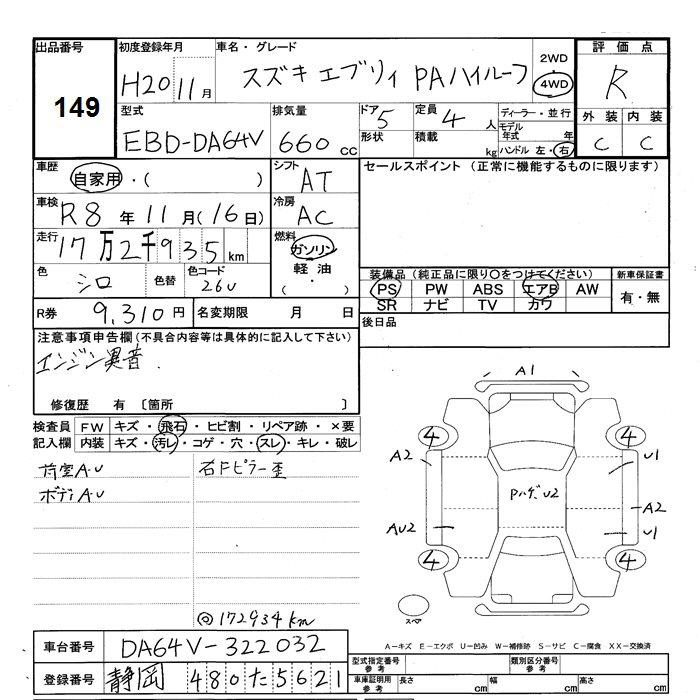 出品番号
149
初度登録年月
H20 11月
車名・グレード
スズキ エブリィ PAハイルーフ
2WD
4WD
評価点
R
外装 内装
C C
型式
EBD-DA64V
排気量
660 cc
ドア 5
形状
定員 4 人
積載 kg
ディーラー・並行
モデル年式 年
ハンドル 左・右
車歴
自家用・( )
シフト
AT
車検
R8年11月(16日)
冷房
AC
走行
17万2千935km
燃料
ガソリン
軽油
( ・ )
色
シロ
色替
色コード
26U
R券 9,310円
名変期限 月 日
セールスポイント (正常に機能するものに限ります)
装備品 (純正品に限り〇をつけてください)
PS PW ABS エアB AW
SR ナビ TV カワ
新車保証書
有・無
後日品
注意事項申告欄(不具合内容等は具体的に記入して下さい)
エンジン異音.
修復歴 有 〔箇所 〕
検査員記入欄
FW キズ・飛石・ヒビ割・リペア跡・×要
内装 キズ・汚レ・コゲ・穴・スレ・キレ・破レ
荷室A.U
ボディA.U
右Fピラー歪
◎172934km
A1
4 4
A2 U1
Pハゲ U2
A2
AU2 U1
4 4
スペア
A-キズ E-エクボ U-凹み W-補修跡 S-サビ C-腐食 XX-交換済
車台番号 DA64V-322032
登録番号 静岡 480た5621
型式指定番号 参考
類別区分番号 参考
車庫証明用 参考
長さ cm 幅 cm 高さ cm